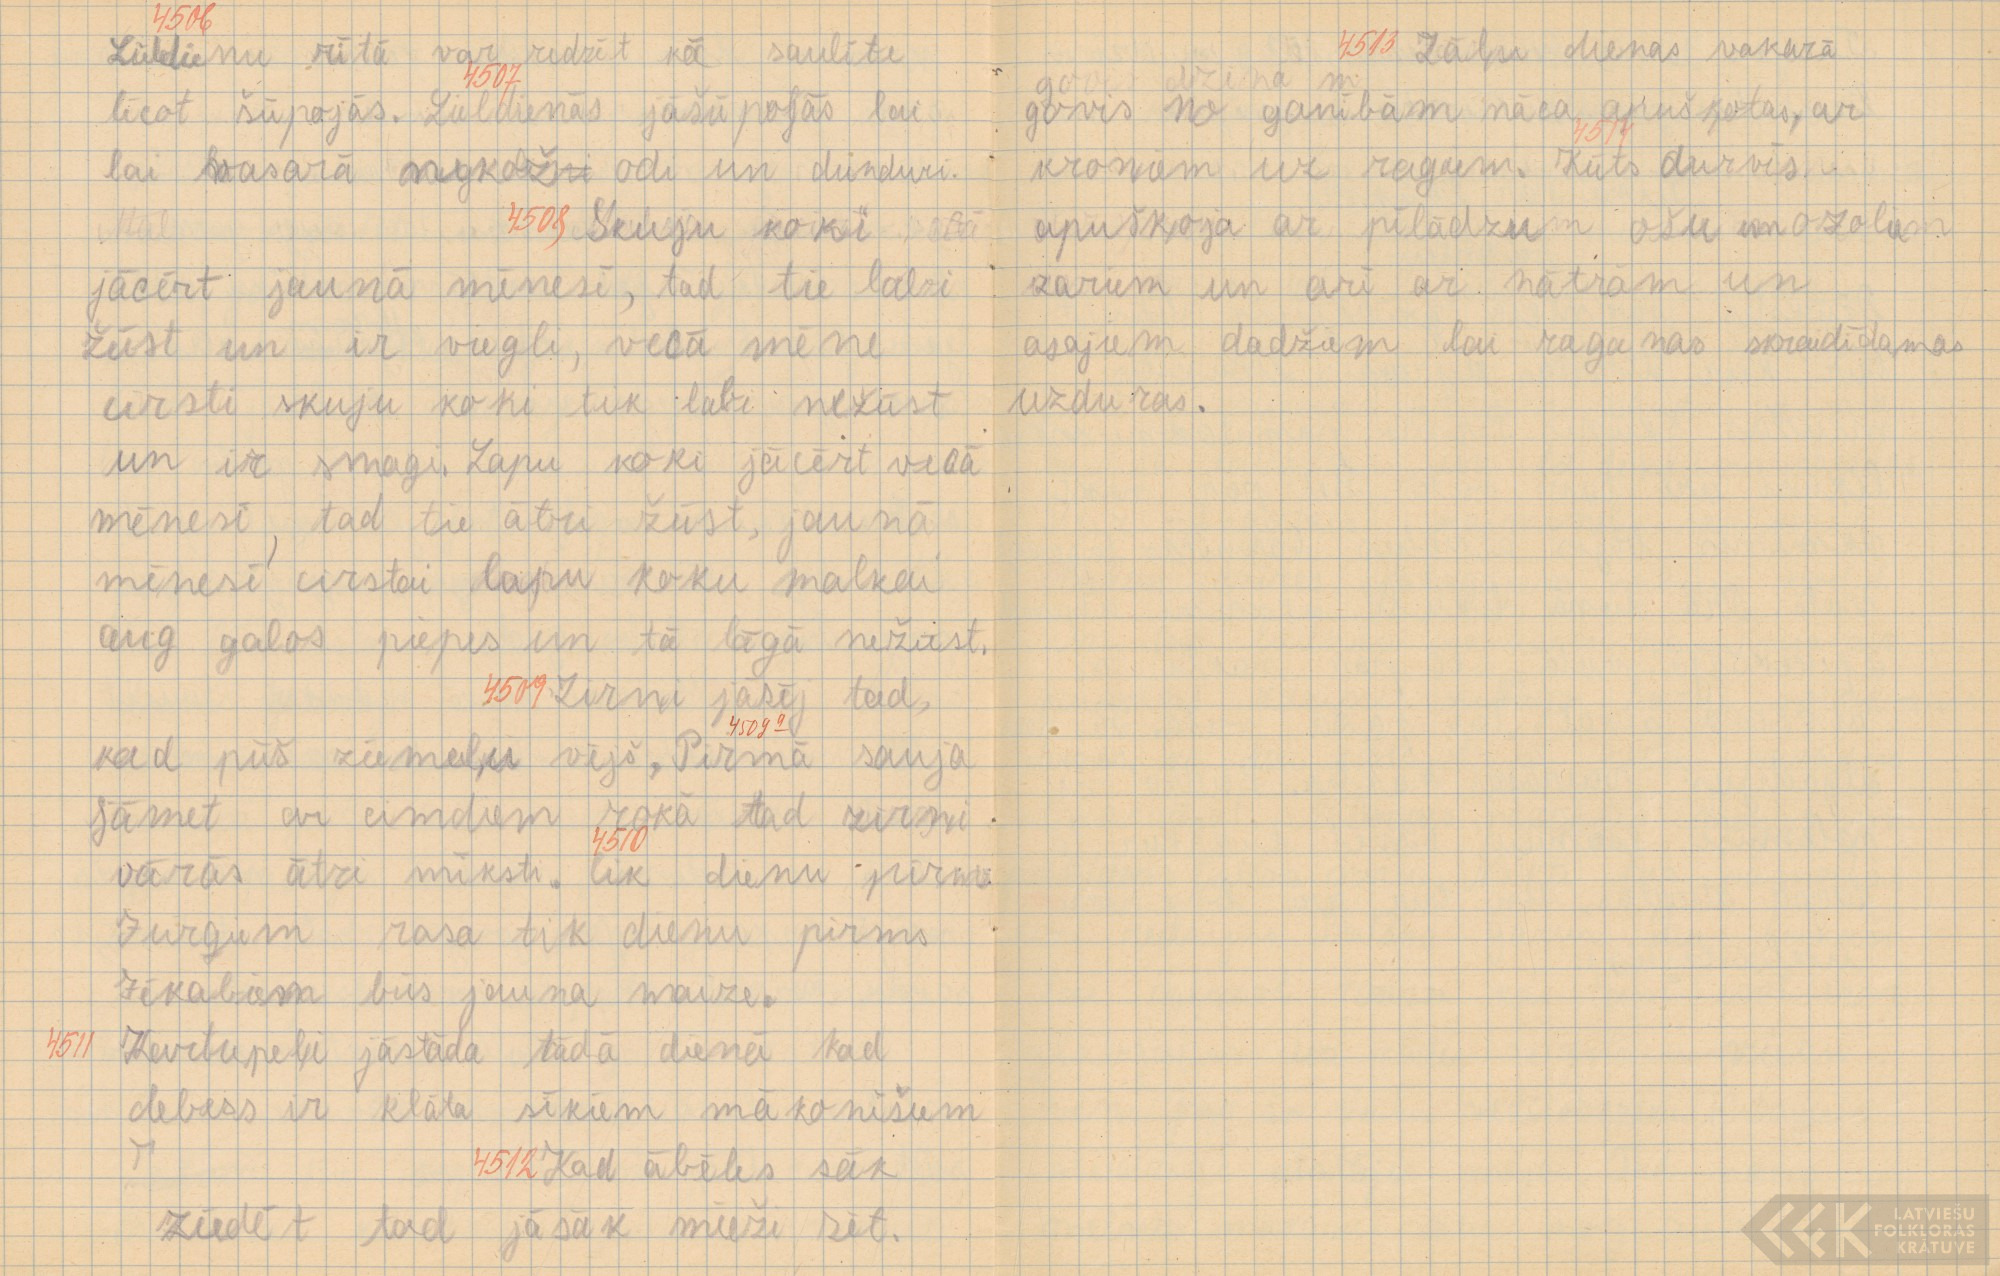 4506
Lieldienu rītā var redzēt kā saulīte
lēcot šūpojās. 4507 Lieldienās jāšūpojās lai
lai vasarā nekož odi un dunduri.
4508 Skuju koki
jācērt jaunā mēnesī, tad tie labi
žūst un ir viegli, vecā mēne
cirsti skuju koki tik labi nežūst
un ir smagi. Lapu koki jācērt vecā
mēnesī, tad tie ātri žūst, jaunā
mēnesī cirstai lapu koku malkai
aug galos piepes un tā lāgā nežūst.
4509 Zirņi jāsēj tad,
kad pūš ziemeļu vējš. 4509a Pirmā sauja
jāmet ar cimdiem rokā tad zirņi
vārās ātri mīksti. 4510 Cik dienu pirms
Jurģiem rasa tik dienu pirms
Jēkabiem būs jauna maize.
4511 Kartupeļi jāstāda tādā dienā kad
debess ir klāta sīkiem mākonīšiem
4512 Kad ābeles sāk
ziedēt tad jāsāk mieži sēt.
4513 Zāļu dienas vakarā
govis no ganībām nāca apušķotas, ar
kroņiem uz ragiem. 4514 Kūts durvis
apušķoja ar pīlādžiem ošu un ozoliem
zariem un arī ar nātrām un
asajiem dadžiem lai raganas skraidīdamas
uzduras.
LATVIEŠU
FOLKLORAS
KRĀTUVE